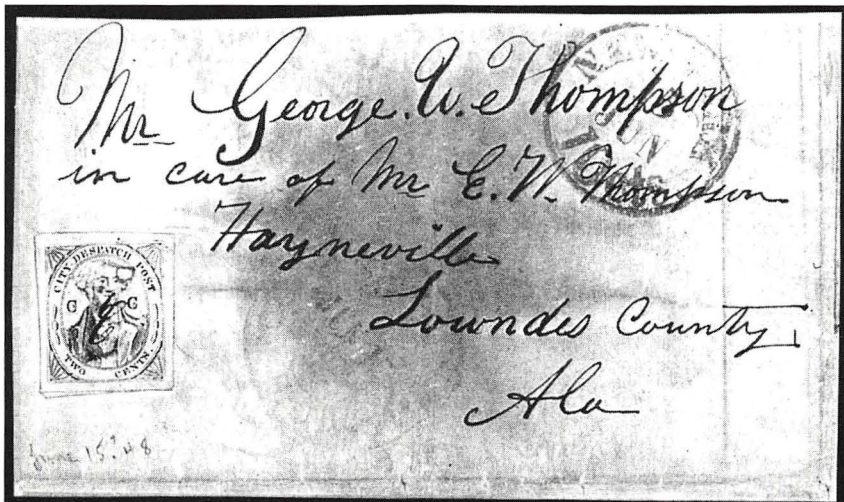 Mr George. W. Thompson
in care of Mr C. W. Thompson
Hayneville
Lowndes County,
Ala
CITY DESPATCH POST
C C
TWO CENTS
NEW
JUN
June 15th 48